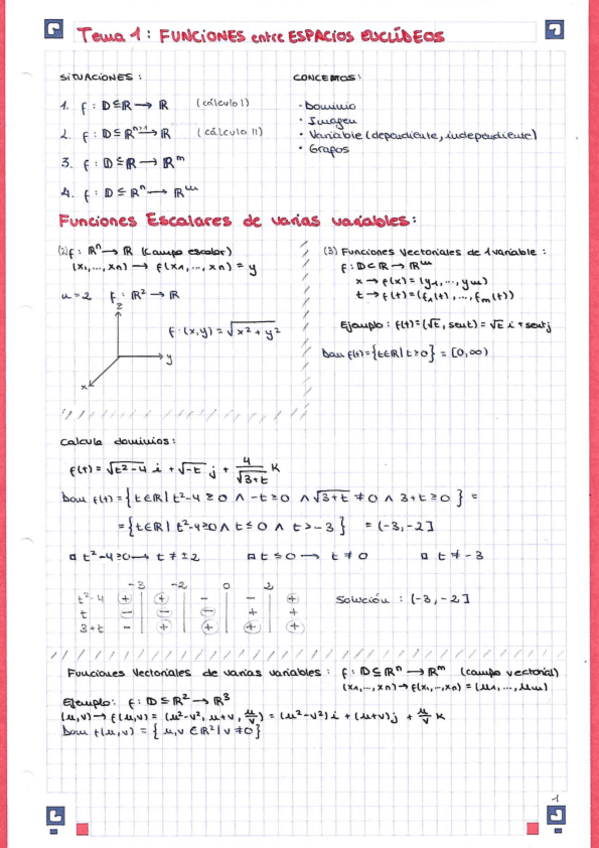 Tema 1: FUNCIONES entre ESPACIOS EUCLÍDEOS
SITUACIONES:
1. f: D⊆R → R (cálculo I)
2. f: D⊆Rⁿ → R (cálculo II)
3. f: D⊆R → Rᵐ
4. f: D⊆Rⁿ → Rᵐ
CONCEPTOS:
· Dominio
· Imagen
· Variable (dependiente, independiente)
· Grafos
Funciones Escalares de varias variables:
(2) f: Rⁿ → R (Campo escalar)
(x₁,..., xn) → f(x₁,..., xn) = y
n=2 f: R² → R
z
y
x
f·(x,y) = √x²+y²
(3) Funciones Vectoriales de 1 variable:
f: D⊂R → Rᵐ
x → f(x) = (y₁,..., ym)
t → f(t) = (f₁(t),..., fm(t))
Ejemplo: f(t) = (√t, sent) = √t i + sent j
Dom f(t) = {t∈R | t≥0} = [0,∞)
Calcula dominios:
f(t) = √t²-4 i + √-t j + 4/√3+t K
Dom f(t) = {t∈R | t²-4≥0 ∧ -t≥0 ∧ √3+t ≠0 ∧ 3+t≥0} =
= {t∈R | t²-4≥0 ∧ t≤0 ∧ t>-3} = (-3,-2]
t²-4≥0 → t ≠ ±2 t≤0 → t ≠ 0 t ≠ -3
-3 -2 0 2
t²-4 + + - - +
t - - - + +
3+t - + + + +
Solución: (-3,-2]
Funciones Vectoriales de varias variables: f: D⊆Rⁿ → Rᵐ (campo vectorial)
(x₁,..., xn) → f(x₁,..., xn) = (u₁,..., um)
Ejemplo: f: D⊆R² → R³
(u,v) → f(u,v) = (u²-v², u+v, u/v) = (u²-v²) i + (u+v) j + u/v K
Dom f(u,v) = {u,v ∈R² | v≠0}
1